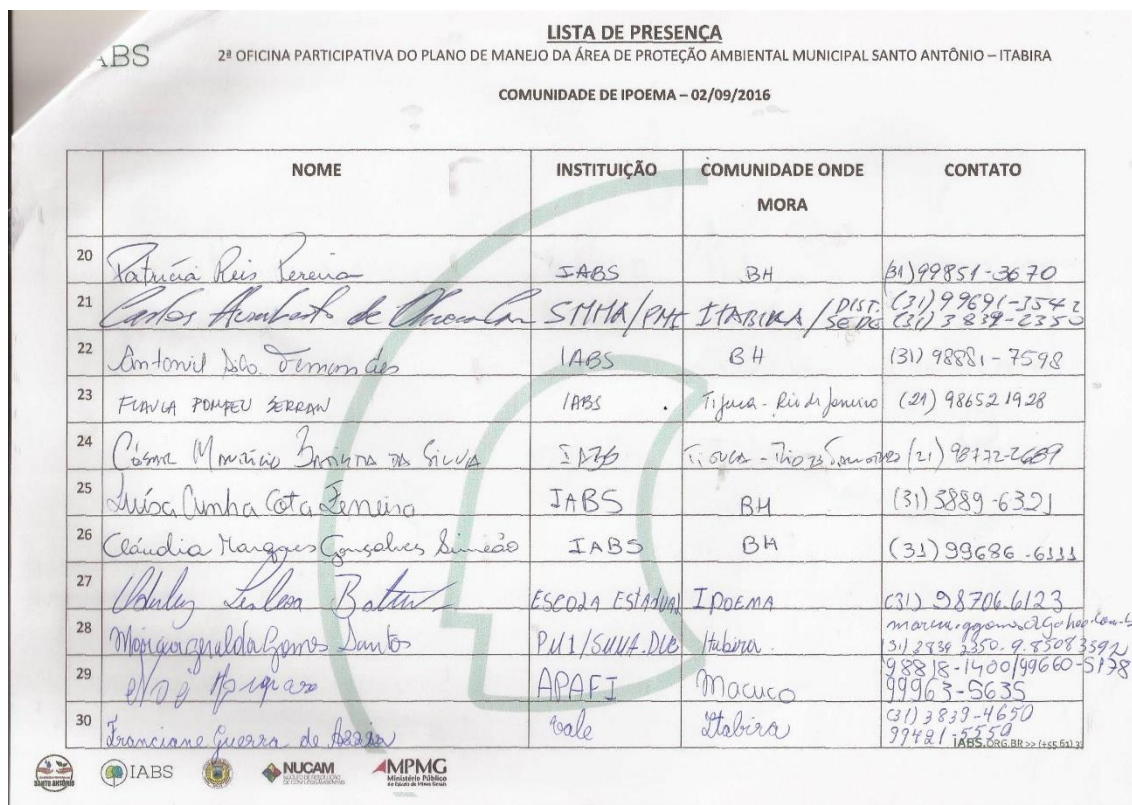 LISTA DE PRESENÇA
ABS
2ª OFICINA PARTICIPATIVA DO PLANO DE MANEJO DA ÁREA DE PROTEÇÃO AMBIENTAL MUNICIPAL SANTO ANTÔNIO – ITABIRA
COMUNIDADE DE IPOEMA – 02/09/2016
NOME INSTITUIÇÃO COMUNIDADE ONDE MORA CONTATO
20 Patrícia Reis Pereira IABS BH (31) 99851-3670
21 Carlos Humberto de SMMA/PMI ITABIRA / DIST. SEDE (31) 99691-3542 (31) 3839-2350
22 IABS BH (31) 98881-7598
23 FLAVIA POMPEU SERRAN IABS Tijuca - Rio de Janeiro (21) 986521928
24 César Maurício Batista da Silva IABS (21) 98772-2689
25 Luísa Cunha Cota Ferreira IABS BH (31) 3889-6321
26 Cláudia Marques Gonçalves Simeão IABS BH (31) 99686-6111
27 ESCOLA ESTADUAL IPOEMA (31) 98706.6123
28 Gomes Santos Itabira
29 APAFI Macuco 98818-1400/99660-5178 99963-5635
30 Franciane Guerra de Assis Vale Itabira (31) 3839-4650 99421-5550
IABS.ORG.BR >> (+55 61) 33
SANTO ANTÔNIO
IABS
NUCAM
MPMG
Ministério Público
do Estado de Minas Gerais